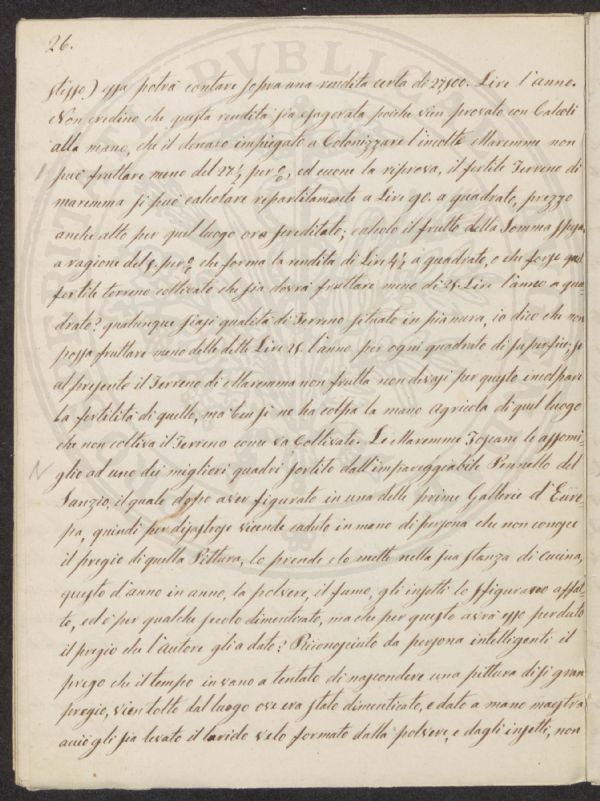 26.
stesso) essa potrà contare sopra una rendita certa di 27500. Lire l'anno.
Non credino che questa rendita sia esagerata poiche vien provato con Calcoli
alla mano, che il denaro impiegato a Colonizzare l'incolte Maremme non
può fruttare meno del 27½ per %, ed eccone la riprova, il fertile Terreno di
maremma si può calcolare repartitamente a Lire 90. a quadrato, prezzo
anche alto per quel luogo ora screditato; calcolo il frutto della Somma spesa,
a ragione del 5. per % che forma la rendita di Lire 4½ a quadrato, o che forse quel
fertile terreno coltivato che sia dovrà fruttare meno di 25. Lire l'anno a qua=
drato? qualunque siasi qualità di Terreno situato in pianura, io dico che non
possa fruttare meno delle dette Lire 25. l'anno per ogni quadrato di superficie; se
al presente il Terreno di Maremma non frutta non devasi per questo incolpare
la fertilità di quello, ma ben si ne ha colpa la mano Agricola di quel luogo
che non coltiva il Terreno come va Coltivato. Le Maremme Toscane le assomi
glio ad uno dei migliori quadri sortito dall'impareggiabile Pennello del
Sanzio, il quale dopo aver figurato in una delle prime Gallerie d'Euro=
pa, quindi per disastrose vicende caduto in mano di persona che non conosce
il pregio di quella Pittura, lo prende e lo mette nella sua stanza di cucina,
questo d'anno in anno, la polvere, il fumo, gli insetti lo sfigurano affat=
to, ed è per qualche secolo dimenticato, ma che per questo avrà esso perduto
il pregio che l'Autore gli a dato? Riconosciuto da persona intelligente il
prego che il tempo in vano a tentato di nascondere una pittura di si gran
pregio, vien tolto dal luogo ove era stato dimenticato, e dato a mano maestra
acciò gli sia levato il lurido velo formato dalla polvere, e dagli insetti, non